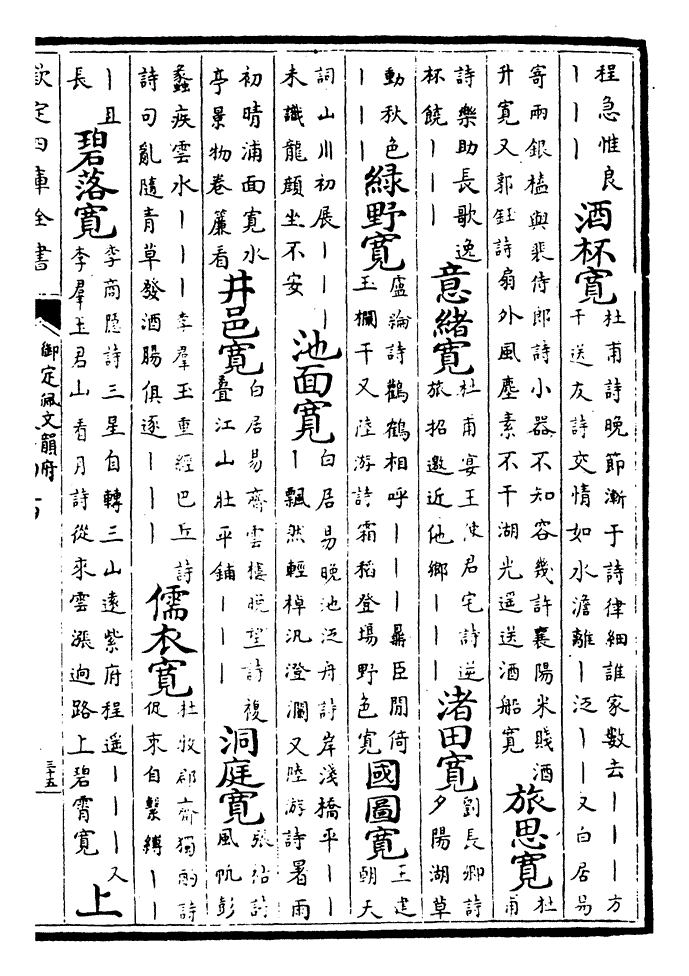 程急惟良
丨丨丨
酒杯寛
杜甫詩晚節漸于詩律細誰家數去丨丨丨方
干送友詩交情如水澹離丨泛丨丨又白居易
寄兩銀榼與裴侍郎詩小器不知容幾許襄陽米賤酒
升寛又郭鈺詩扇外風塵素不干湖光遥送酒船寛
旅思寛
杜
甫
詩樂助長歌逸
杯饒丨丨丨
意緒寛
杜甫宴王使君宅詩逆
旅招邀近他鄉丨丨
渚田寛
劉長卿詩
夕陽湖草
動秋色
丨丨丨
緑野寛
盧綸詩鸛鶴相呼丨丨丨鼂臣閒倚
玉欄干又陸游詩霜稻登場野色寛
國圖寛
王建
朝天
詞山川初展丨丨丨
未識龍顔坐不安
池面寛
白居易晚池泛舟詩岸淺橋平丨丨
丨飄然輕棹汎澄瀾又陸游詩暑雨
初晴浦面寛水
亭景物卷簾看
井邑寛
白居易齊雲樓晚望詩複
疊江山壯平鋪丨丨丨
洞庭寛
張紹詩
風帆彭
蠡疾雲水丨丨丨李羣玉重經巴丘詩
詩句亂隨青草發酒腸俱逐丨丨丨
儒衣寛
杜牧郡齋獨酌詩
促束自繫縛丨丨
丨且
長
碧落寛
李商隠詩三星自轉三山遠紫府程遥丨丨丨又
李羣玉君山看月詩從來雲漲迥路上碧霄寛
上
欽定四庫全書
御定佩文韻府
三十五